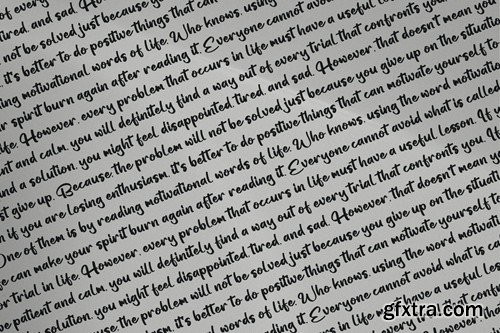 of every
not be solved just because you
it's better to do positive things that can
motivational words of life. Who knows, using
spirit burn again after reading it. Everyone cannot avoid
life. However, every problem that occurs in life must have a useful
and calm, you will definitely find a way out of every trial that confronts you
a solution, you might feel disappointed, tired, and sad. However, that doesn't mean you
give up. Because, the problem will not be solved just because you give up on the situation
if you are losing enthusiasm, it's better to do positive things that can motivate yourself
One of them is by reading motivational words of life. Who knows, using the word motivation
can make your spirit burn again after reading it. Everyone cannot avoid what is called
or trial in life. However, every problem that occurs in life must have a useful lesson. If
patient and calm, you will definitely find a way out of every trial that confronts you.
solution, you might feel disappointed, tired, and sad. However, that doesn't mean
Because, the problem will not be solved just because you give up on the situation
enthusiasm, it's better to do positive things that can motivate yourself
motivational words of life. Who knows, using the word
after reading it. Everyone cannot avoid what is called
gfxtra.com